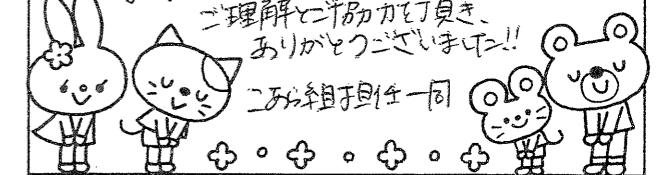 ご理解とご協力を頂き、
ありがとうございました!!
こあら組担任一同